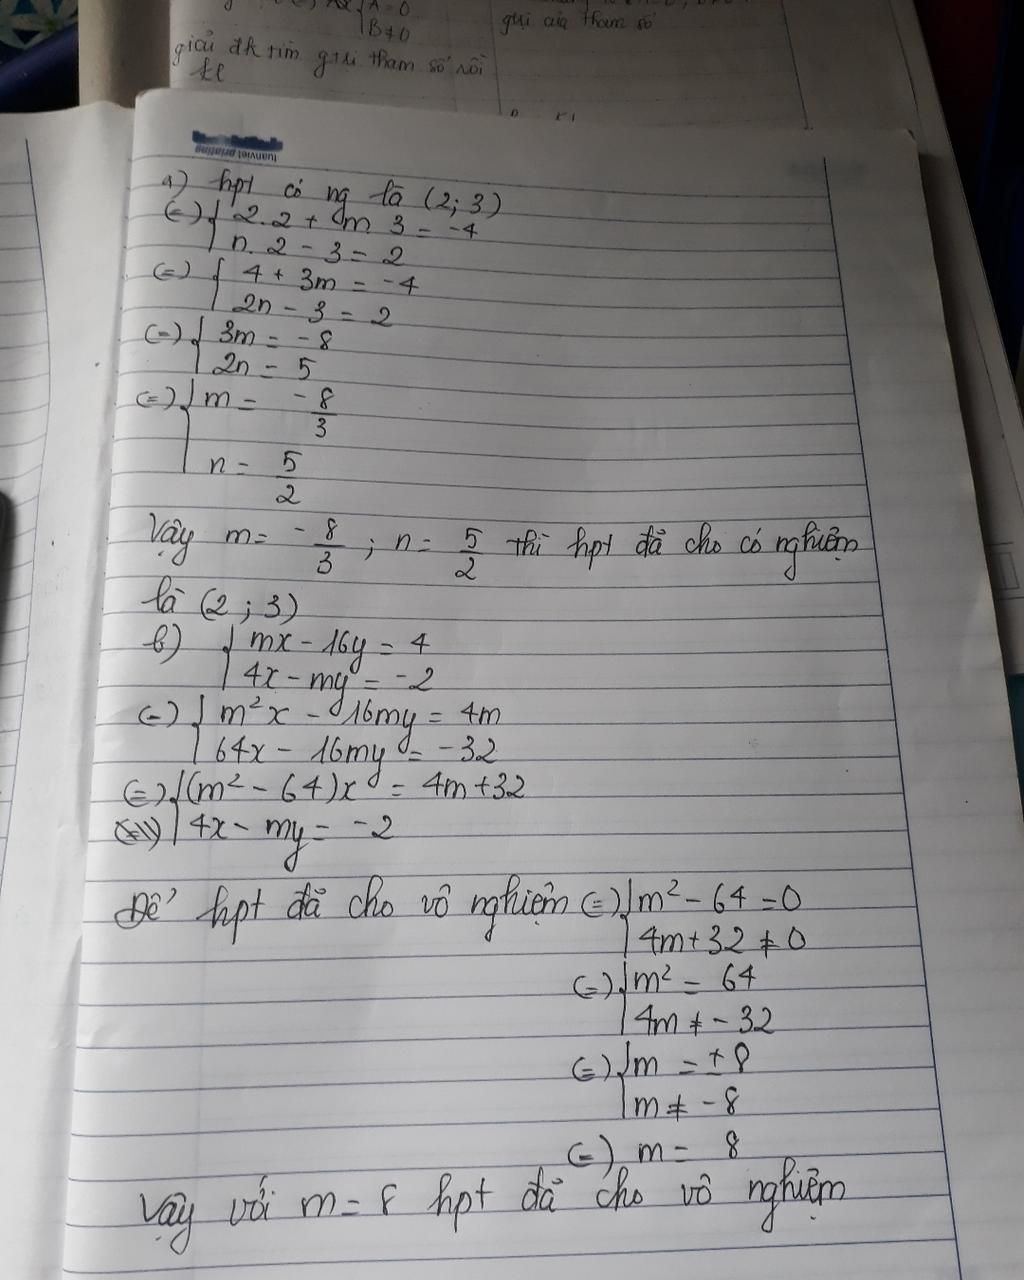 A = 0
B ≠ 0
giá của tham số
giải đk tìm gtri tham số rồi
kl
tuanviet printing
a) hpt có ng là (2; 3)
(=) { 2.2 + m 3 = -4
n. 2 - 3 = 2
(=) { 4 + 3m = -4
2n - 3 = 2
(=) { 3m = -8
2n = 5
(=) { m = -8/3
n = 5/2
Vậy m = -8/3 ; n = 5/2 thì hpt đã cho có nghiệm
là (2 ; 3)
b) { mx - 16y = 4
4x - my = -2
(=) { m²x - 16my = 4m
64x - 16my = -32
(=) { (m² - 64)x = 4m+32
4x - my = -2
Để hpt đã cho vô nghiệm (=) { m² - 64 = 0
4m+32 ≠ 0
(=) { m² = 64
4m ≠ - 32
(=) { m = ±8
m ≠ -8
(=) m = 8
Vậy với m = 8 hpt đã cho vô nghiệm